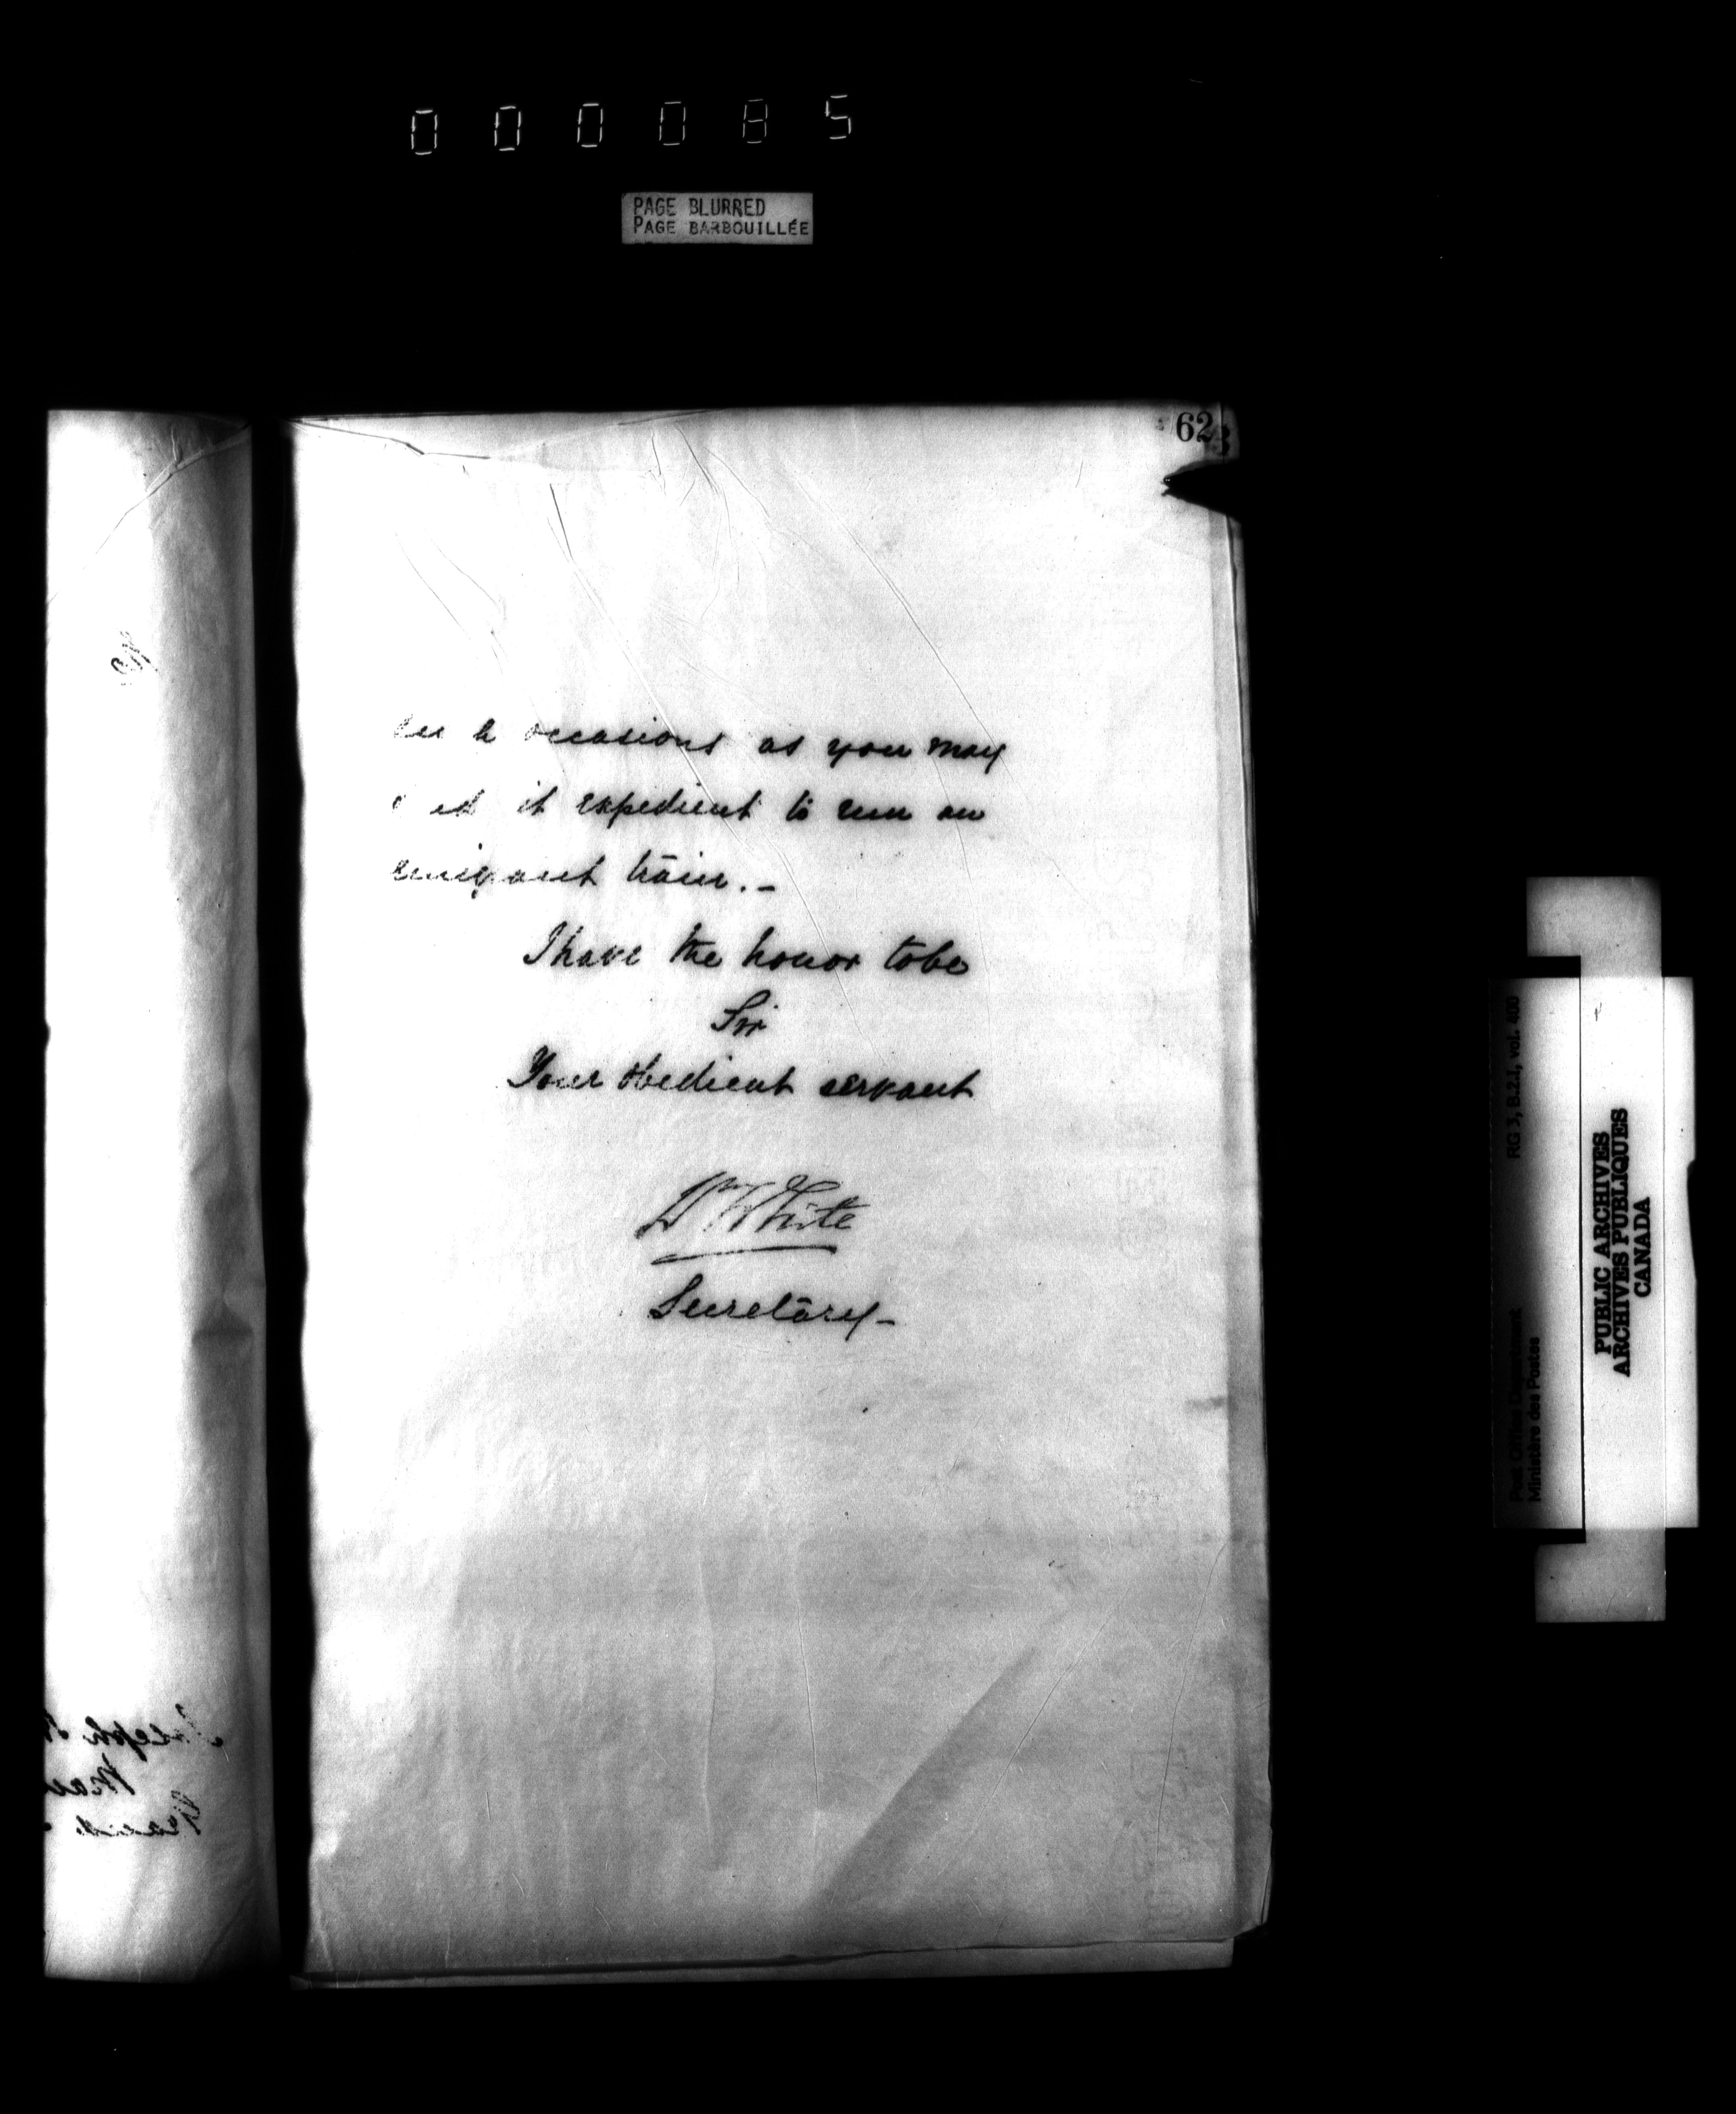 000085
PAGE BLURRED
PAGE BARBOUILLÉE
62
such occasions as you may
it expedient to run an
emigrant train.-
I have the honor to be
Sir
Your obedient servant
Wm White
Secretary-
RG 3, B.2.1, vol. 400
Post Office Department
Ministère des Postes
PUBLIC ARCHIVES
ARCHIVES PUBLIQUES
CANADA
Joseph